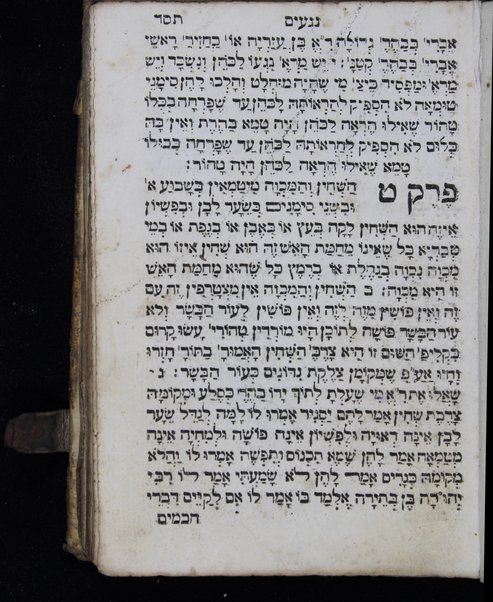 נגעים תסד
אֵבָרִי׳ בְּבַהֶר׳ גְּדוֹלָה רִ׳א בֶּן עֲזַרְיָה אוֹ׳ בַּחֲזִיר׳ רָאשֵׁי
אֵבָרִי׳ בְּבַהֶר׳ קְטַנָּ׳ : י יֵשׁ מַרְאֶ׳ נִגְעוֹ לַכֹּהֵן וְנִשְׂכַּר וְיֵשׁ
מַרְאֶ׳ וּמַפְסִיד כֵּיצַ׳ מִי שֶׁהָיָה מוּחְלָט וְהָלְכוּ לָהֶן סִימָנֵי
טוּמְאָה לֹא הִסְפִּיק לְהַרְאוֹתָהּ לַכֹּהֵן עַד שֶׁפָּרְחָה בְּכֻלּוֹ
טָהוֹר שֶׁאִילּוּ הֶרְאָה לַכֹּהֵן הָיָה טָמֵא בַּהֶרֶת וְאֵין בָּהּ
כְּלוּם לֹא הִסְפִּיק לְהַרְאוֹתָהּ לַכֹּהֵן עַד שֶׁפָּרְחָה בְּכוּלּוֹ
טָמֵא שֶׁאִילּוּ הֶרְאָה לַכֹּהֵן הָיָה טָהוֹר :
פרק ט הַשְּׁחִין וְהַמִּכְוָה מִיטַּמְּאִין בְּשָׁבוּעַ א׳
וּבִשְׁנֵי סִימָנִים בְּשֵׂעָר לָבָן וּבְפִשְׂיוֹן
אֵיזֶה הוּא הַשְּׁחִין לָקָה בְּעֵץ אוֹ בְּאֶבֶן אוֹ בְּגֶפֶת אוֹ בְּמֵי
טְבֶרְיָא כָּל שֶׁאֵינוֹ מֵחֲמַת הָאֵשׁ זֶה הוּא שְׁחִין אֵיזוֹ הוּא
מִכְוָה נִכְוָה בְּגַחֶלֶת אוֹ בְּרֶמֶץ כָּל שֶׁהוּא מֵחֲמַת הָאֵשׁ
זוֹ הִיא מִכְוָה : ב הַשְּׁחִין וְהַמִּכְוָה אֵין מִצְטָרְפִין זֶה עִם
זֶה וְאֵין פּוֹשִׂין מִזֶּה לָזֶה וְאֵין פּוֹשִׂין לְעוֹר הַבָּשָׂר וְלֹא
עוֹר הַבָּשָׂר פּוֹשֶׂה לְתוֹכָן הָיוּ מוֹרְדִין טְהוֹרִי׳ עָשׂוּ קְרוּם
כִּקְלִיפַּ׳ הַשּׁוּם זוֹ הִיא צָרֶבֶ׳ הַשְּׁחִין הָאָמוּר׳ בַּתּוֹרָ׳ חָזְרוּ
וְחָיוּ אַעַ״פִּ שֶׁמְּקוֹמָן צַלֶּקֶת נִדּוֹנִים כְּעוֹר הַבָּשָׂר : ג
שָׁאֲלוּ אֶת רִ׳א מִי שֶׁעָלְתָ׳ לְתוֹךְ יָדוֹ בַּהֶר׳ כְּסֶלַע וּמְקוֹמָהּ
צָרֶבֶת שְׁחִין אָמַר לָהֶם יַסְגִּיר אָמְרוּ לוֹ לָמָּה לְגַדֵּל שֵׂעָר
לָבָן אֵינָהּ רְאוּיָה וּלְפִשְׂיוֹן אֵינָהּ פּוֹשָׂה וּלְמִחְיָה אֵינָהּ
מִטַּמְּאָה אָמַר לָהֶן שֶׁמָּא תִּכְנוֹס וְתִפְשֶׂה אָמְרוּ לוֹ וַהֲלֹא
מְקוֹמָהּ כִּגְרִים אָמַר לָהֶן לֹא שָׁמַעְתִּי אָמַר לוֹ רַבִּי
יְהוּדָה בֶּן בְּתֵירָה אֲלַמֵּד בּוֹ אָמַר לוֹ אִם לְקַיֵּים דִּבְרֵי
חכמים